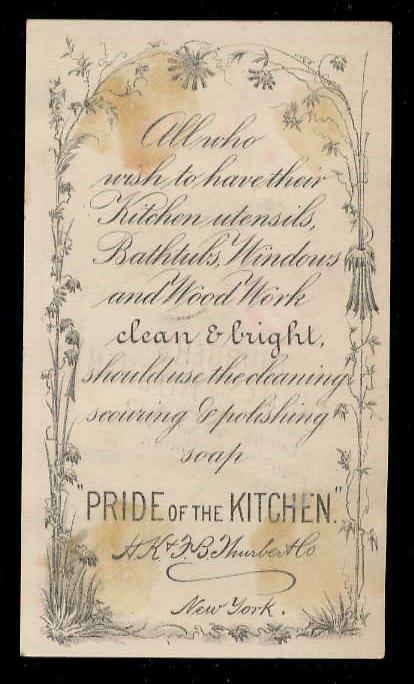 All who
wish to have their
Kitchen utensils,
Bathtubs, Windows
and Wood Work
clean & bright,
should use the cleaning
scouring & polishing
soap
"PRIDE OF THE KITCHEN."
H. K. & F. B. Thurber & Co
New York.